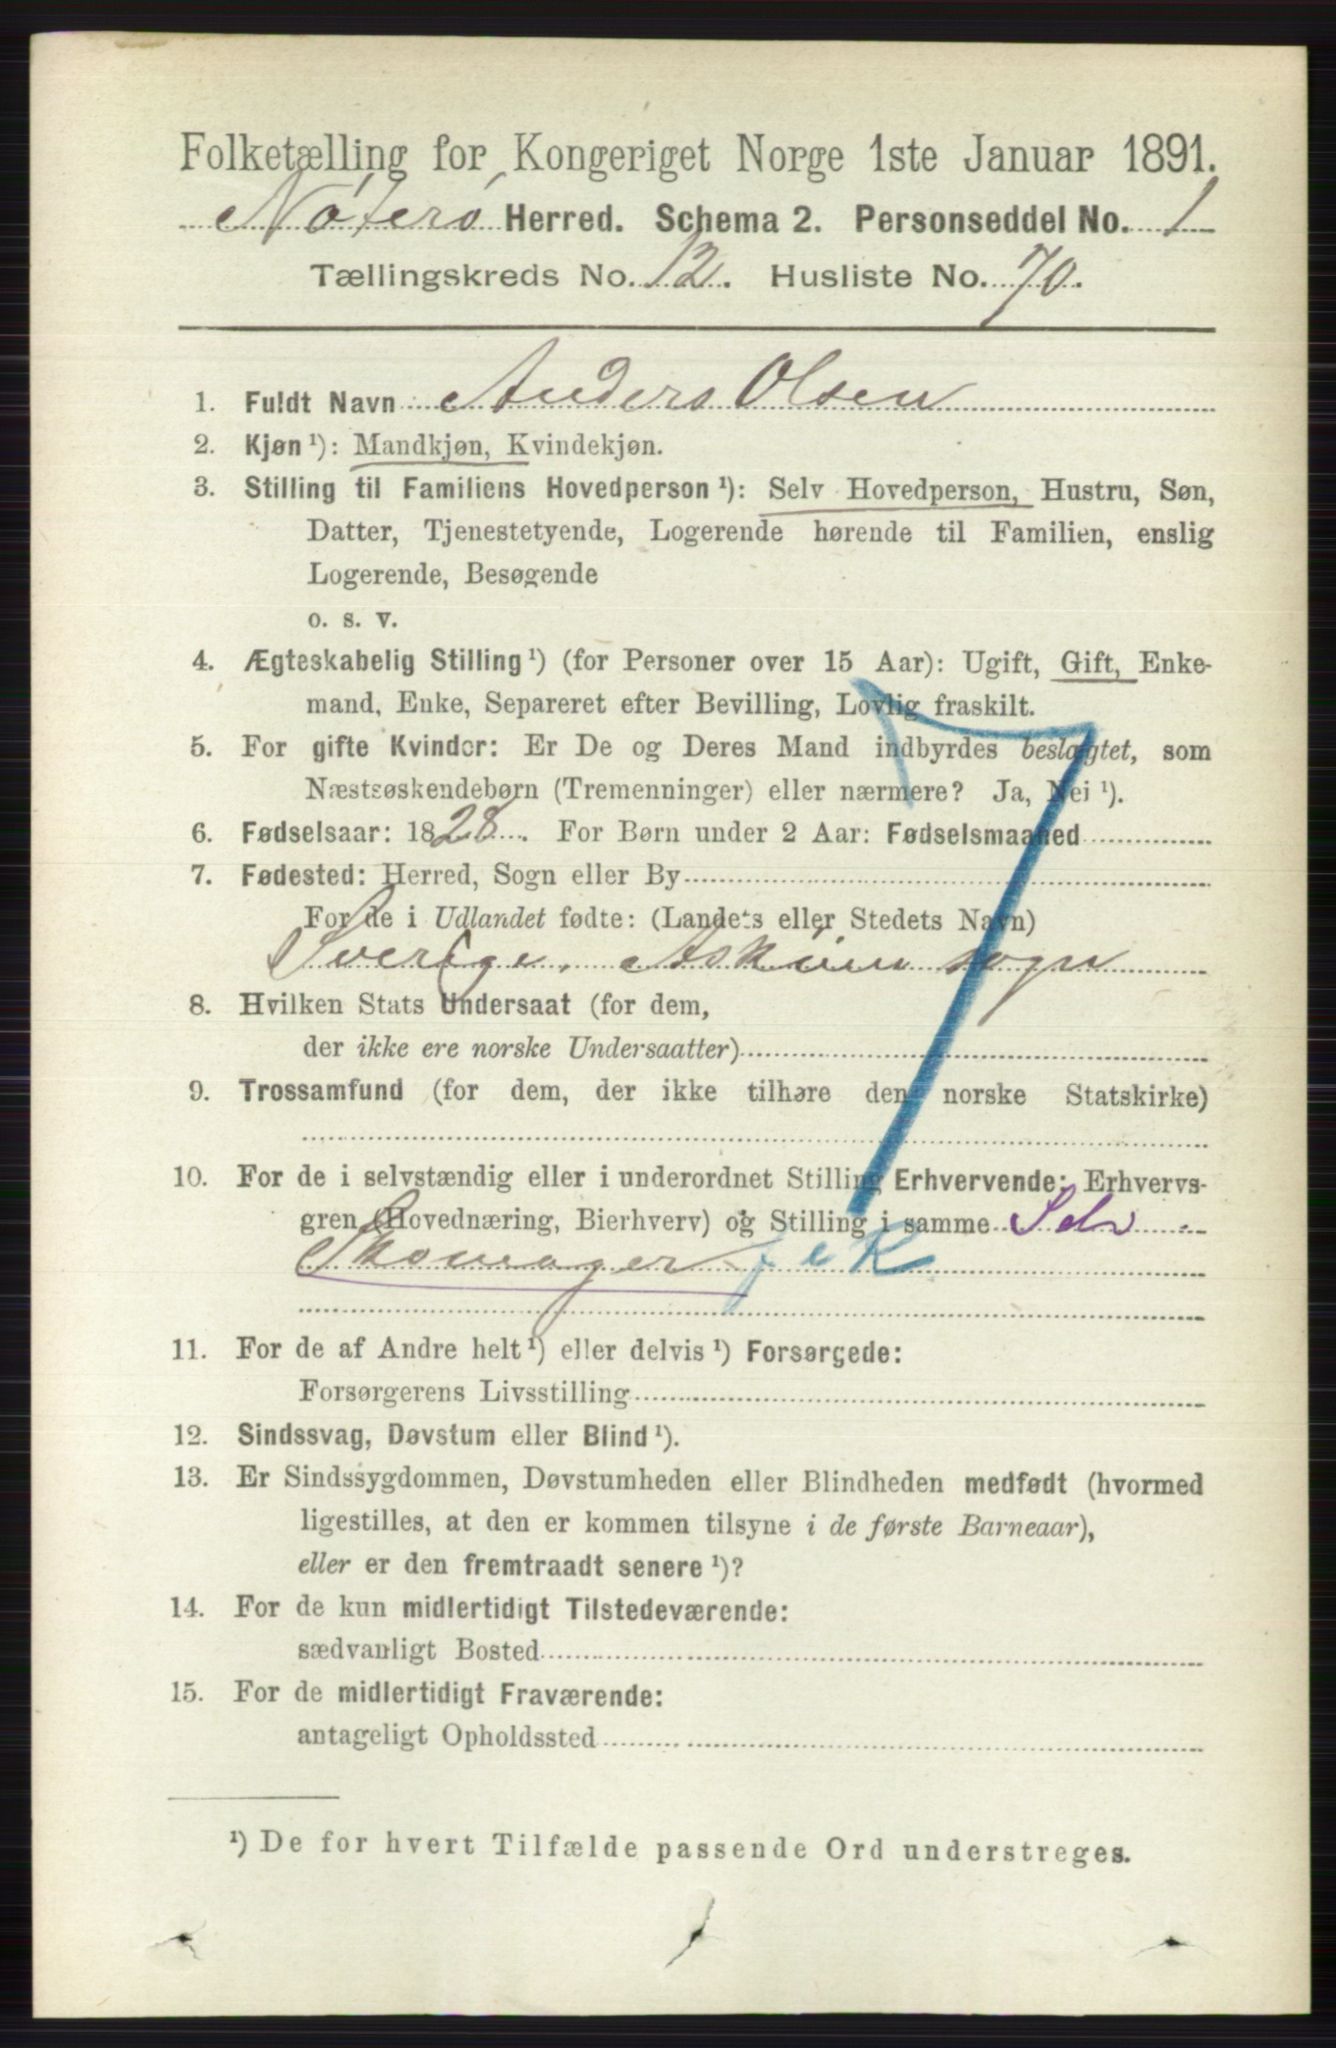 Folketælling for Kongeriget Norge 1ste Januar 1891.
Nøterø Herred. Schema 2. Personseddel No. 1
Tællingskreds No. 12. Husliste No. 70.
1. Fuldt Navn Anders Olsen
2. Kjøn ¹): Mandkjøn, Kvindekjøn.
3. Stilling til Familiens Hovedperson ¹): Selv Hovedperson, Hustru, Søn,
Datter, Tjenestetyende, Logerende hørende til Familien, enslig
Logerende, Besøgende
o. s. v.
4. Ægteskabelig Stilling ¹) (for Personer over 15 Aar): Ugift, Gift, Enke-
mand, Enke, Separeret efter Bevilling, Lovlig fraskilt.
5. For gifte Kvinder: Er De og Deres Mand indbyrdes beslægtet, som
Næstsøskendebørn (Tremenninger) eller nærmere? Ja, Nei ¹).
6. Fødselsaar: 1828. For Børn under 2 Aar: Fødselsmaaned
7. Fødested: Herred, Sogn eller By
For de i Udlandet fødte: (Landets eller Stedets Navn)
Sverige, sogn
8. Hvilken Stats Undersaat (for dem,
der ikke ere norske Undersaatter)
9. Trossamfund (for dem, der ikke tilhøre den norske Statskirke)
10. For de i selvstændig eller i underordnet Stilling Erhvervende: Erhvervs-
gren (Hovednæring, Bierhverv) og Stilling i samme Selv
Skomager
11. For de af Andre helt ¹) eller delvis ¹) Forsørgede:
Forsørgerens Livsstilling
12. Sindssvag, Døvstum eller Blind ¹).
13. Er Sindssygdommen, Døvstumheden eller Blindheden medfødt (hvormed
ligestilles, at den er kommen tilsyne i de første Barneaar),
eller er den fremtraadt senere ¹)?
14. For de kun midlertidigt Tilstedeværende:
sædvanligt Bosted
15. For de midlertidigt Fraværende:
antageligt Opholdssted
¹) De for hvert Tilfælde passende Ord understreges.